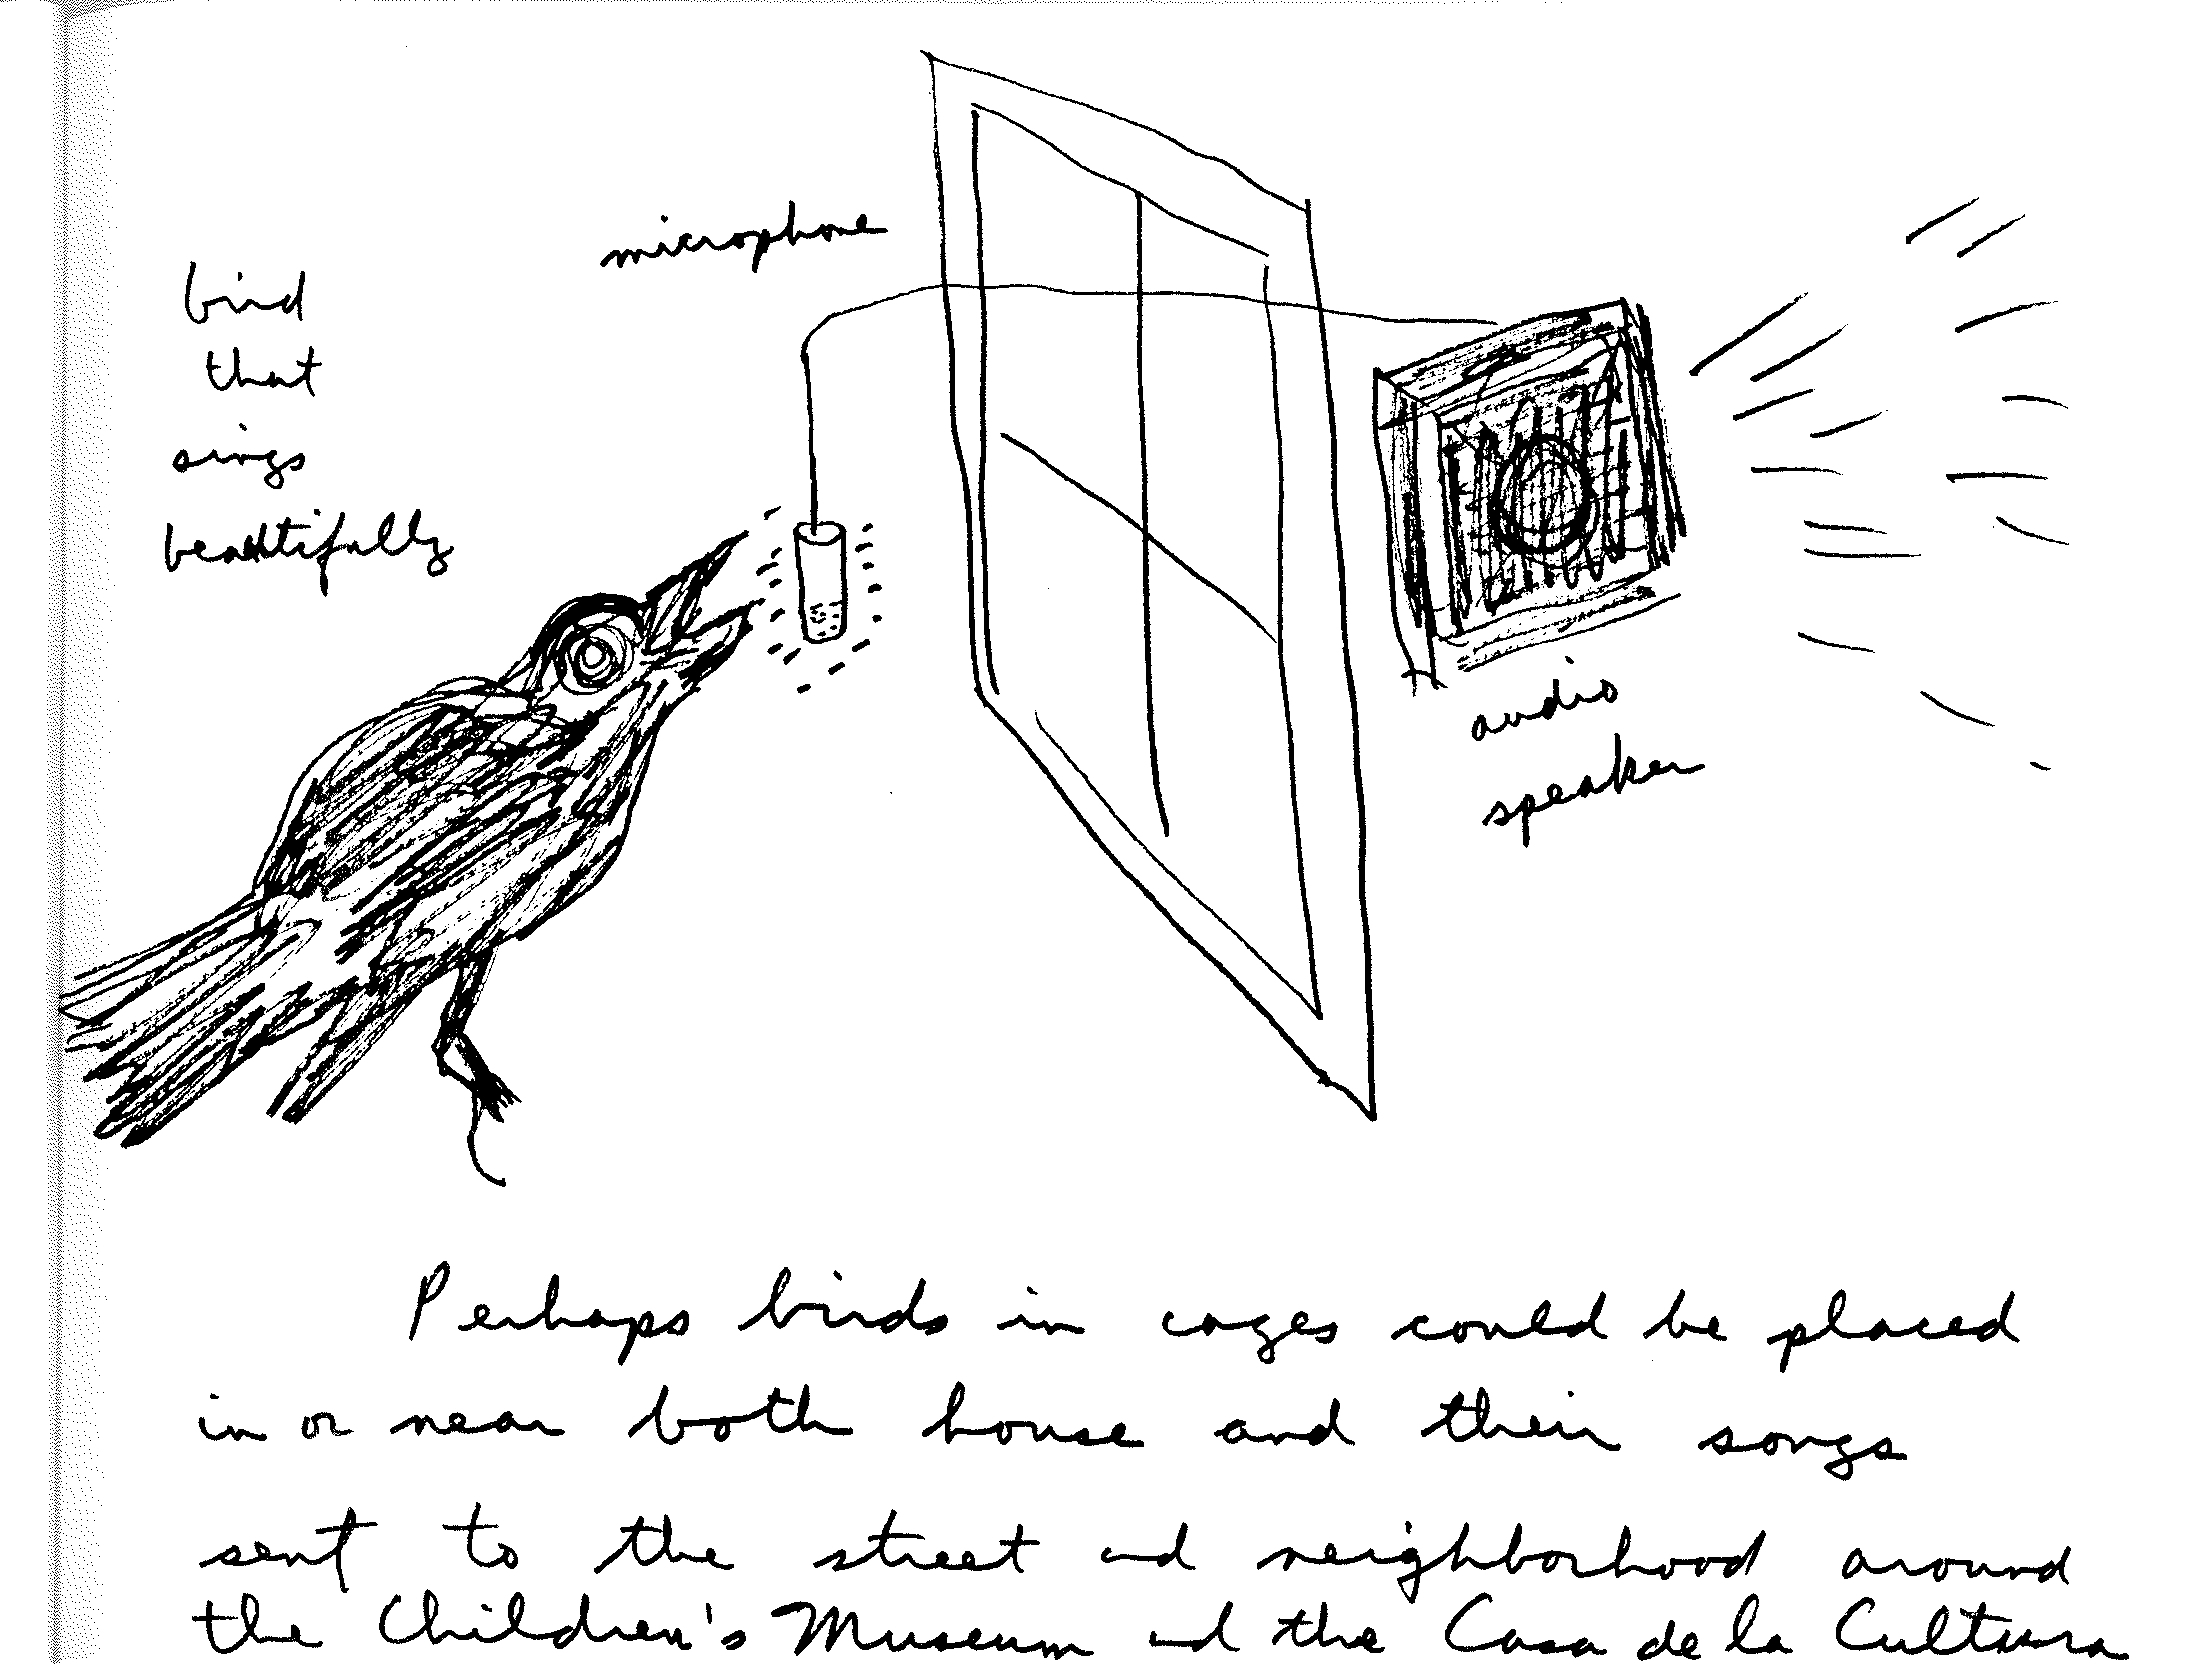 microphone
bird
that
sings
beautifully
audio
speaker
Perhaps birds in cages could be placed
in or near both house and their songs
sent to the street and neighborhood around
the Children's Museum and the Casa de la Cultura